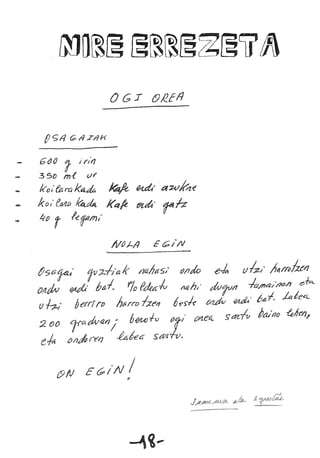 NIRE ERREZETA
OGI OREA
OSAGAIAK
- 600 g irin
- 350 ml ur
- Koilarakada Kafe erdi azukre
- Koilarakada Kafe erdi gatz
- 40 g legami
NOLA EGIN
Osagai guztiak nahasi ondo eta utzi harrotzen
ordu erdi bat. Moldeatu nahi dugun tamainan eta
utzi berriro harrotzen beste ordu erdi bat. Labea
200 graduan; berotu ogi orea sartu baino lehen,
eta ondoren labea sartu.
ON EGIN!
eta
-18-